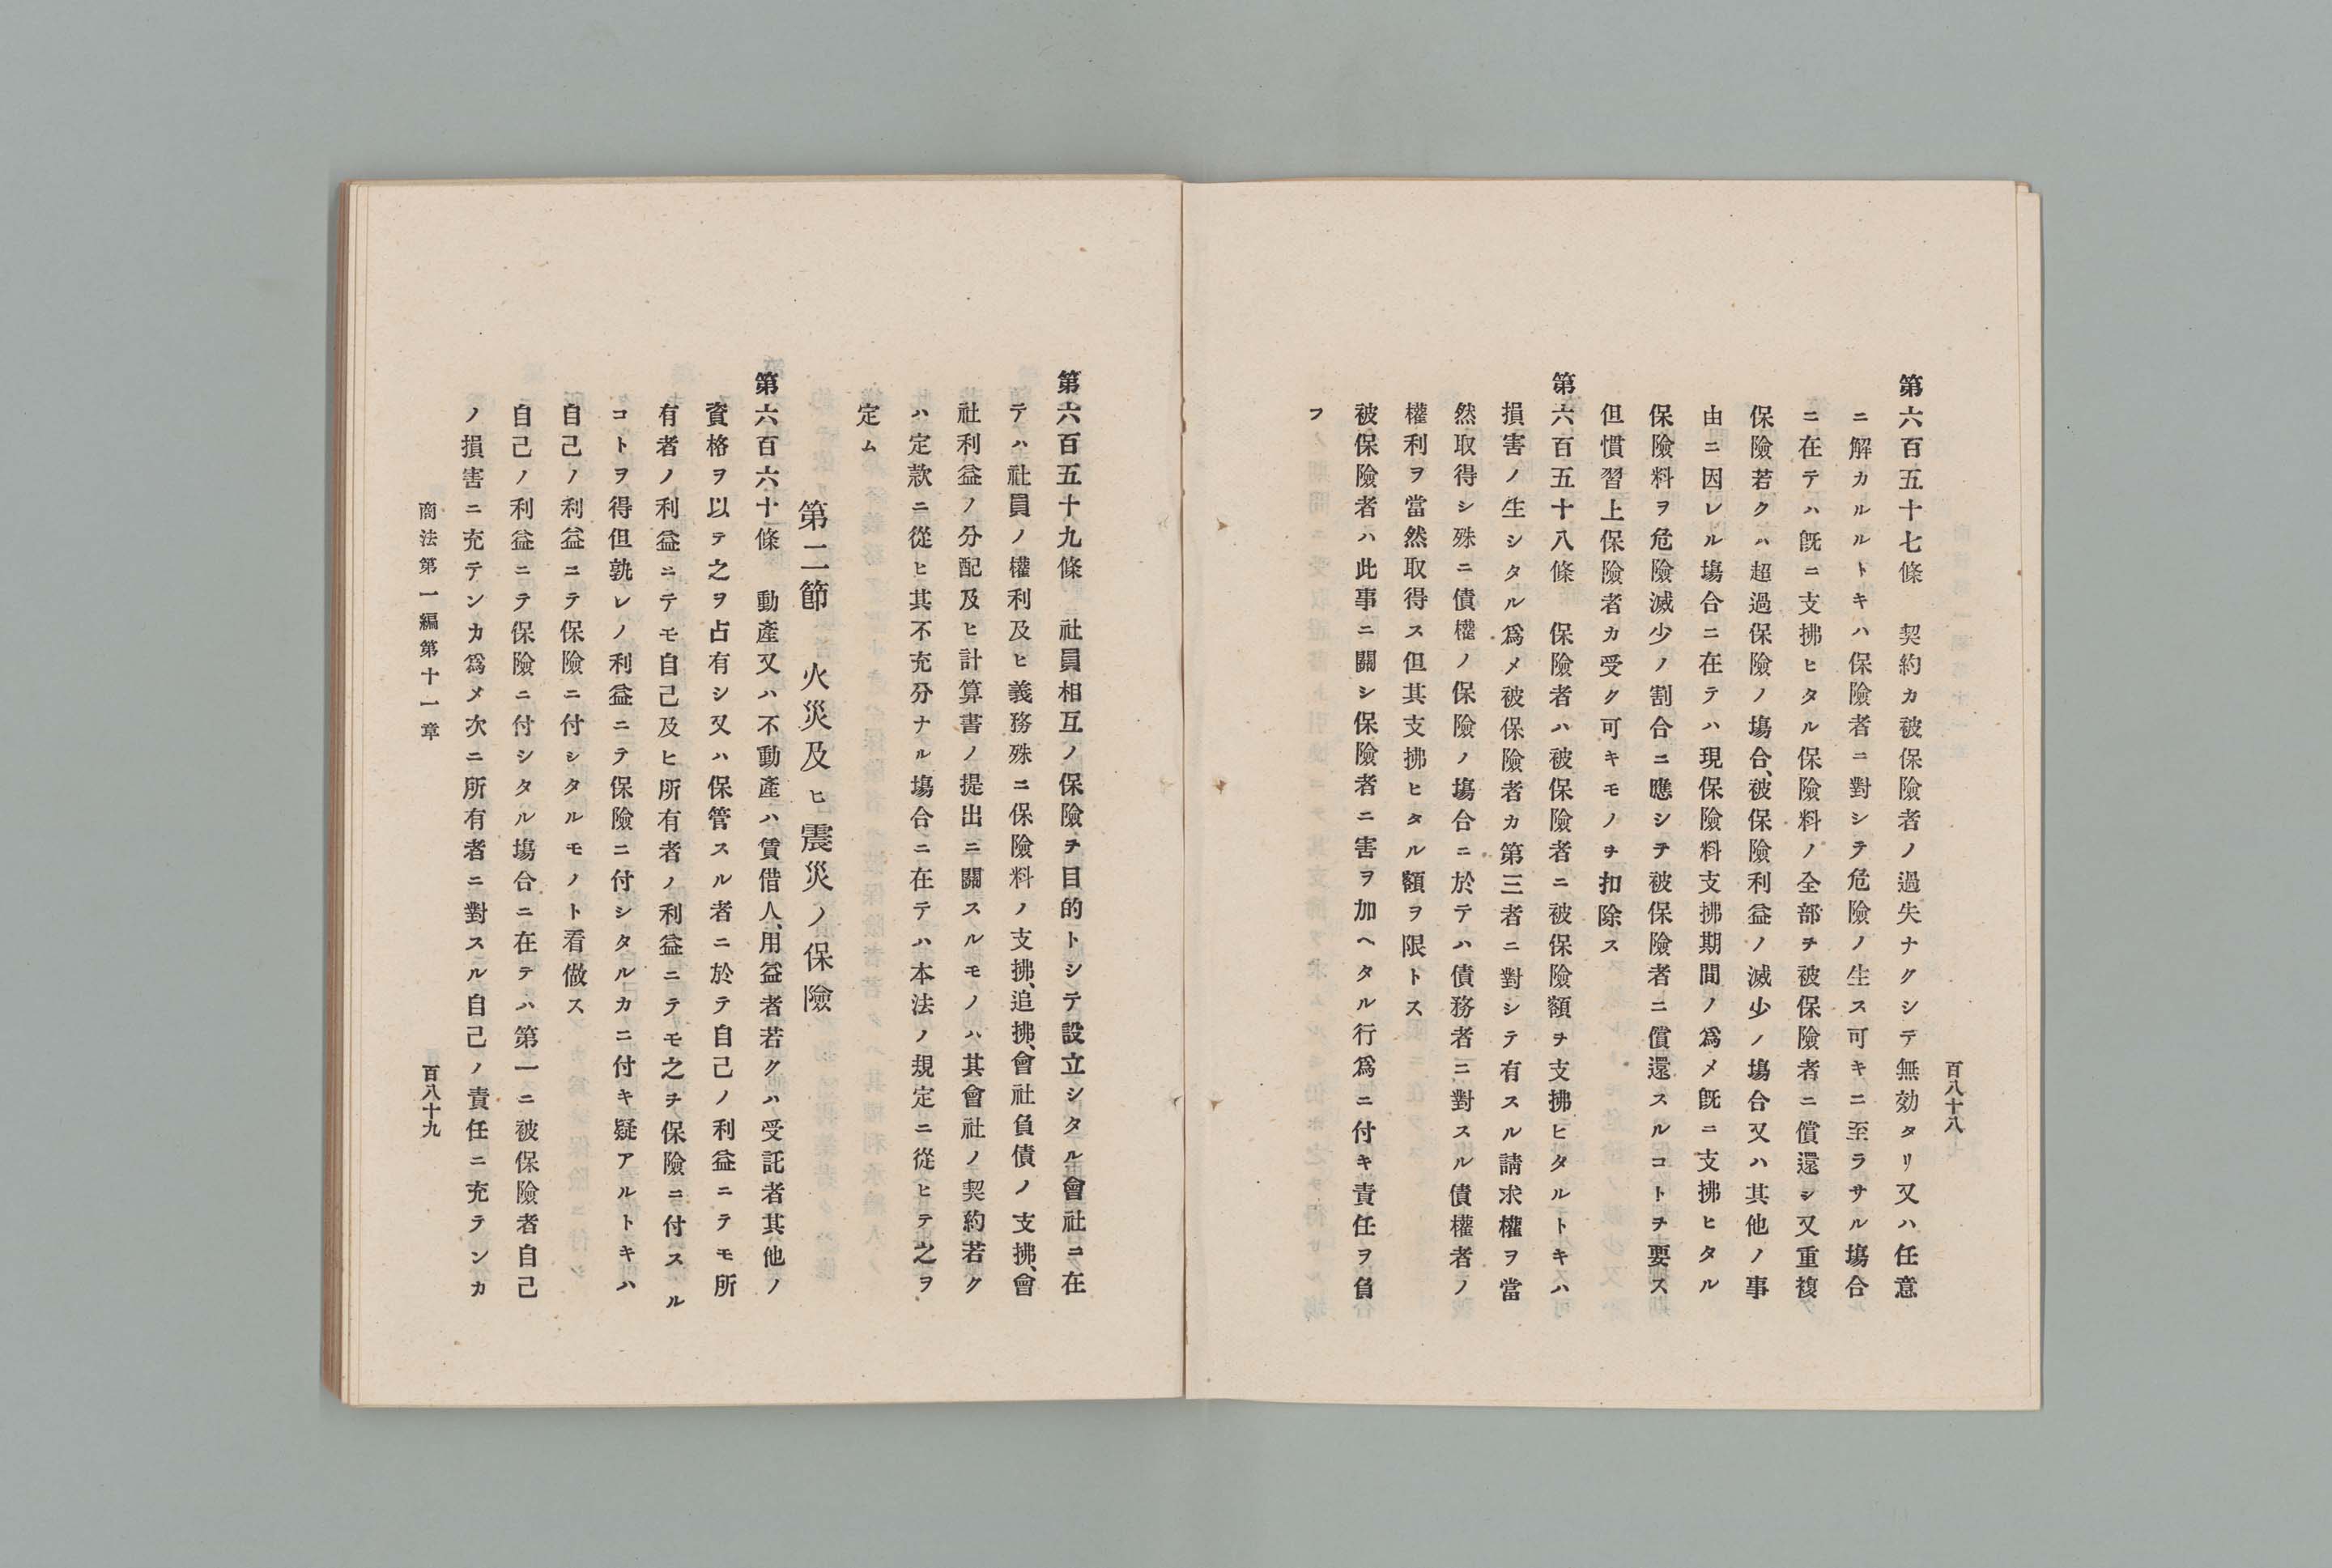 百八十八
第六百五十七條　契約カ被保險者ノ過失ナクシテ無効タリ又ハ任意
ニ解カルルトキハ保險者ニ對シテ危險ノ生ス可キニ至ラサル塲合
ニ在テハ既ニ支拂ヒタル保險料ノ全部ヲ被保險者ニ償還シ又重複
保險若クハ超過保險ノ塲合、被保險利益ノ减少ノ塲合又ハ其他ノ事
由ニ因レル塲合ニ在テハ現保險料支拂期間ノ爲メ既ニ支拂ヒタル
保險料ヲ危險减少ノ割合ニ應シテ被保險者ニ償還スルコトヲ要ス
但慣習上保險者カ受ク可キモノヲ扣除ス
第六百五十八條　保險者ハ被保險者ニ被保險額ヲ支拂ヒタルトキハ
損害ノ生シタル爲メ被保險者カ第三者ニ對シテ有スル請求權ヲ當
然取得シ殊ニ債權ノ保險ノ塲合ニ於テハ債務者ニ對スル債權者ノ
權利ヲ當然取得ス但其支拂ヒタル額ヲ限トス
被保險者ハ此事ニ關シ保險者ニ害ヲ加ヘタル行爲ニ付キ責任ヲ負
フ
第六百五十九條　社員相互ノ保險ヲ目的トシテ設立シタル會社ニ在
テハ社員ノ權利及ヒ義務殊ニ保險料ノ支拂、追拂、會社負債ノ支拂、會
社利益ノ分配及ヒ計算書ノ提出ニ關スルモノハ其會社ノ契約若ク
ハ定款ニ從ヒ其不充分ナル塲合ニ在テハ本法ノ規定ニ從ヒテ之ヲ
定ム
第二節　火災及ヒ震災ノ保險
第六百六十條　動產又ハ不動產ハ賃借人、用益者若クハ受託者其他ノ
資格ヲ以テ之ヲ占有シ又ハ保管スル者ニ於テ自己ノ利益ニテモ所
有者ノ利益ニテモ自己及ヒ所有者ノ利益ニテモ之ヲ保險ニ付スル
コトヲ得但孰レノ利益ニテ保險ニ付シタルカニ付キ疑アルトキハ
自己ノ利益ニテ保險ニ付シタルモノト看做ス
自己ノ利益ニテ保險ニ付シタル塲合ニ在テハ第一ニ被保險者自己
ノ損害ニ充テンカ爲メ次ニ所有者ニ對スル自己ノ責任ニ充テンカ
商法第一編第十一章
百八十九